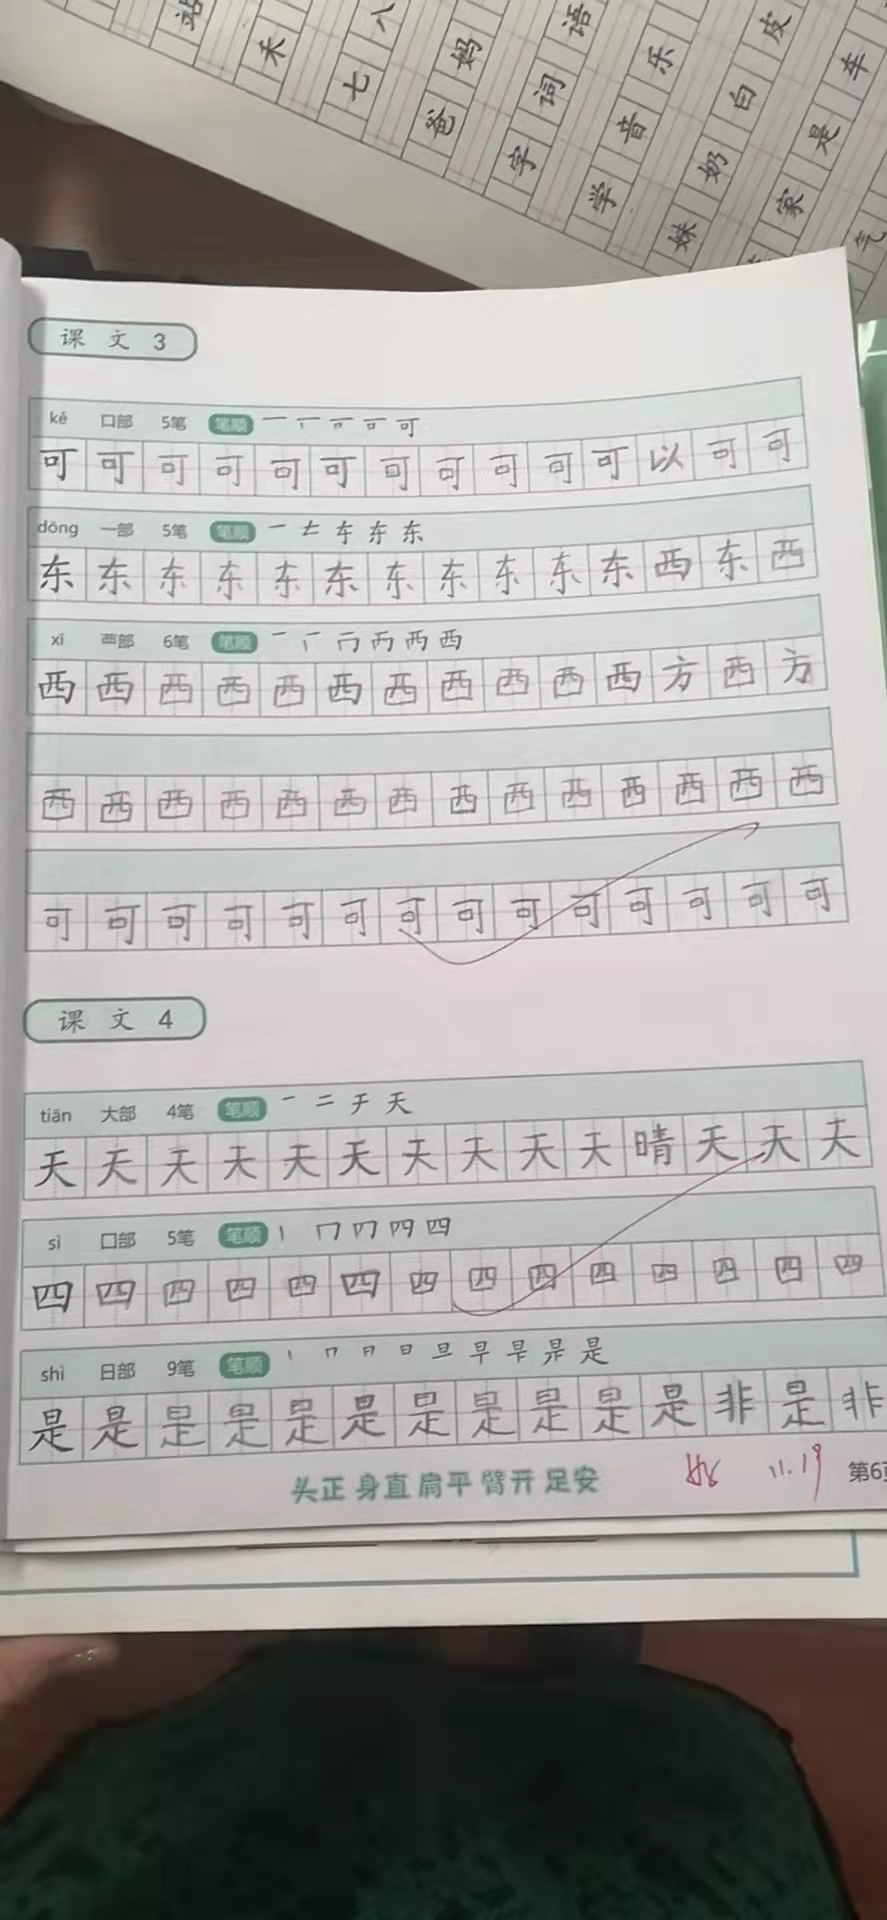 站
禾
七 八
爸 妈
字 词 语
学 音 乐
妹 奶 白 皮
家 是 车
气
课 文 3
kě 口部 5笔 笔顺
可 可 可 可 可 可 可 可 可 可 可 以 可 可
dōng 一部 5笔 笔顺 东
东 东 东 东 东 东 东 东 东 东 东 西 东 西
xī 覀部 6笔 笔顺 西
西 西 西 西 西 西 西 西 西 西 西 方 西 方
西 西 西 西 西 西 西 西 西 西 西 西 西 西
可 可 可 可 可 可 可 可 可 可 可 可 可 可
课 文 4
tiān 大部 4笔 笔顺 一 二 天
天 天 天 天 天 天 天 天 天 天 晴 天 天 天
sì 口部 5笔 笔顺 四
四 四 四 四 四 四 四 四 四 四 四 四 四 四
shì 日部 9笔 笔顺 日 旦 早 是
是 是 是 是 是 是 是 是 是 是 是 非 是 非
头正 身直 肩平 臂开 足安 11.19 第6页